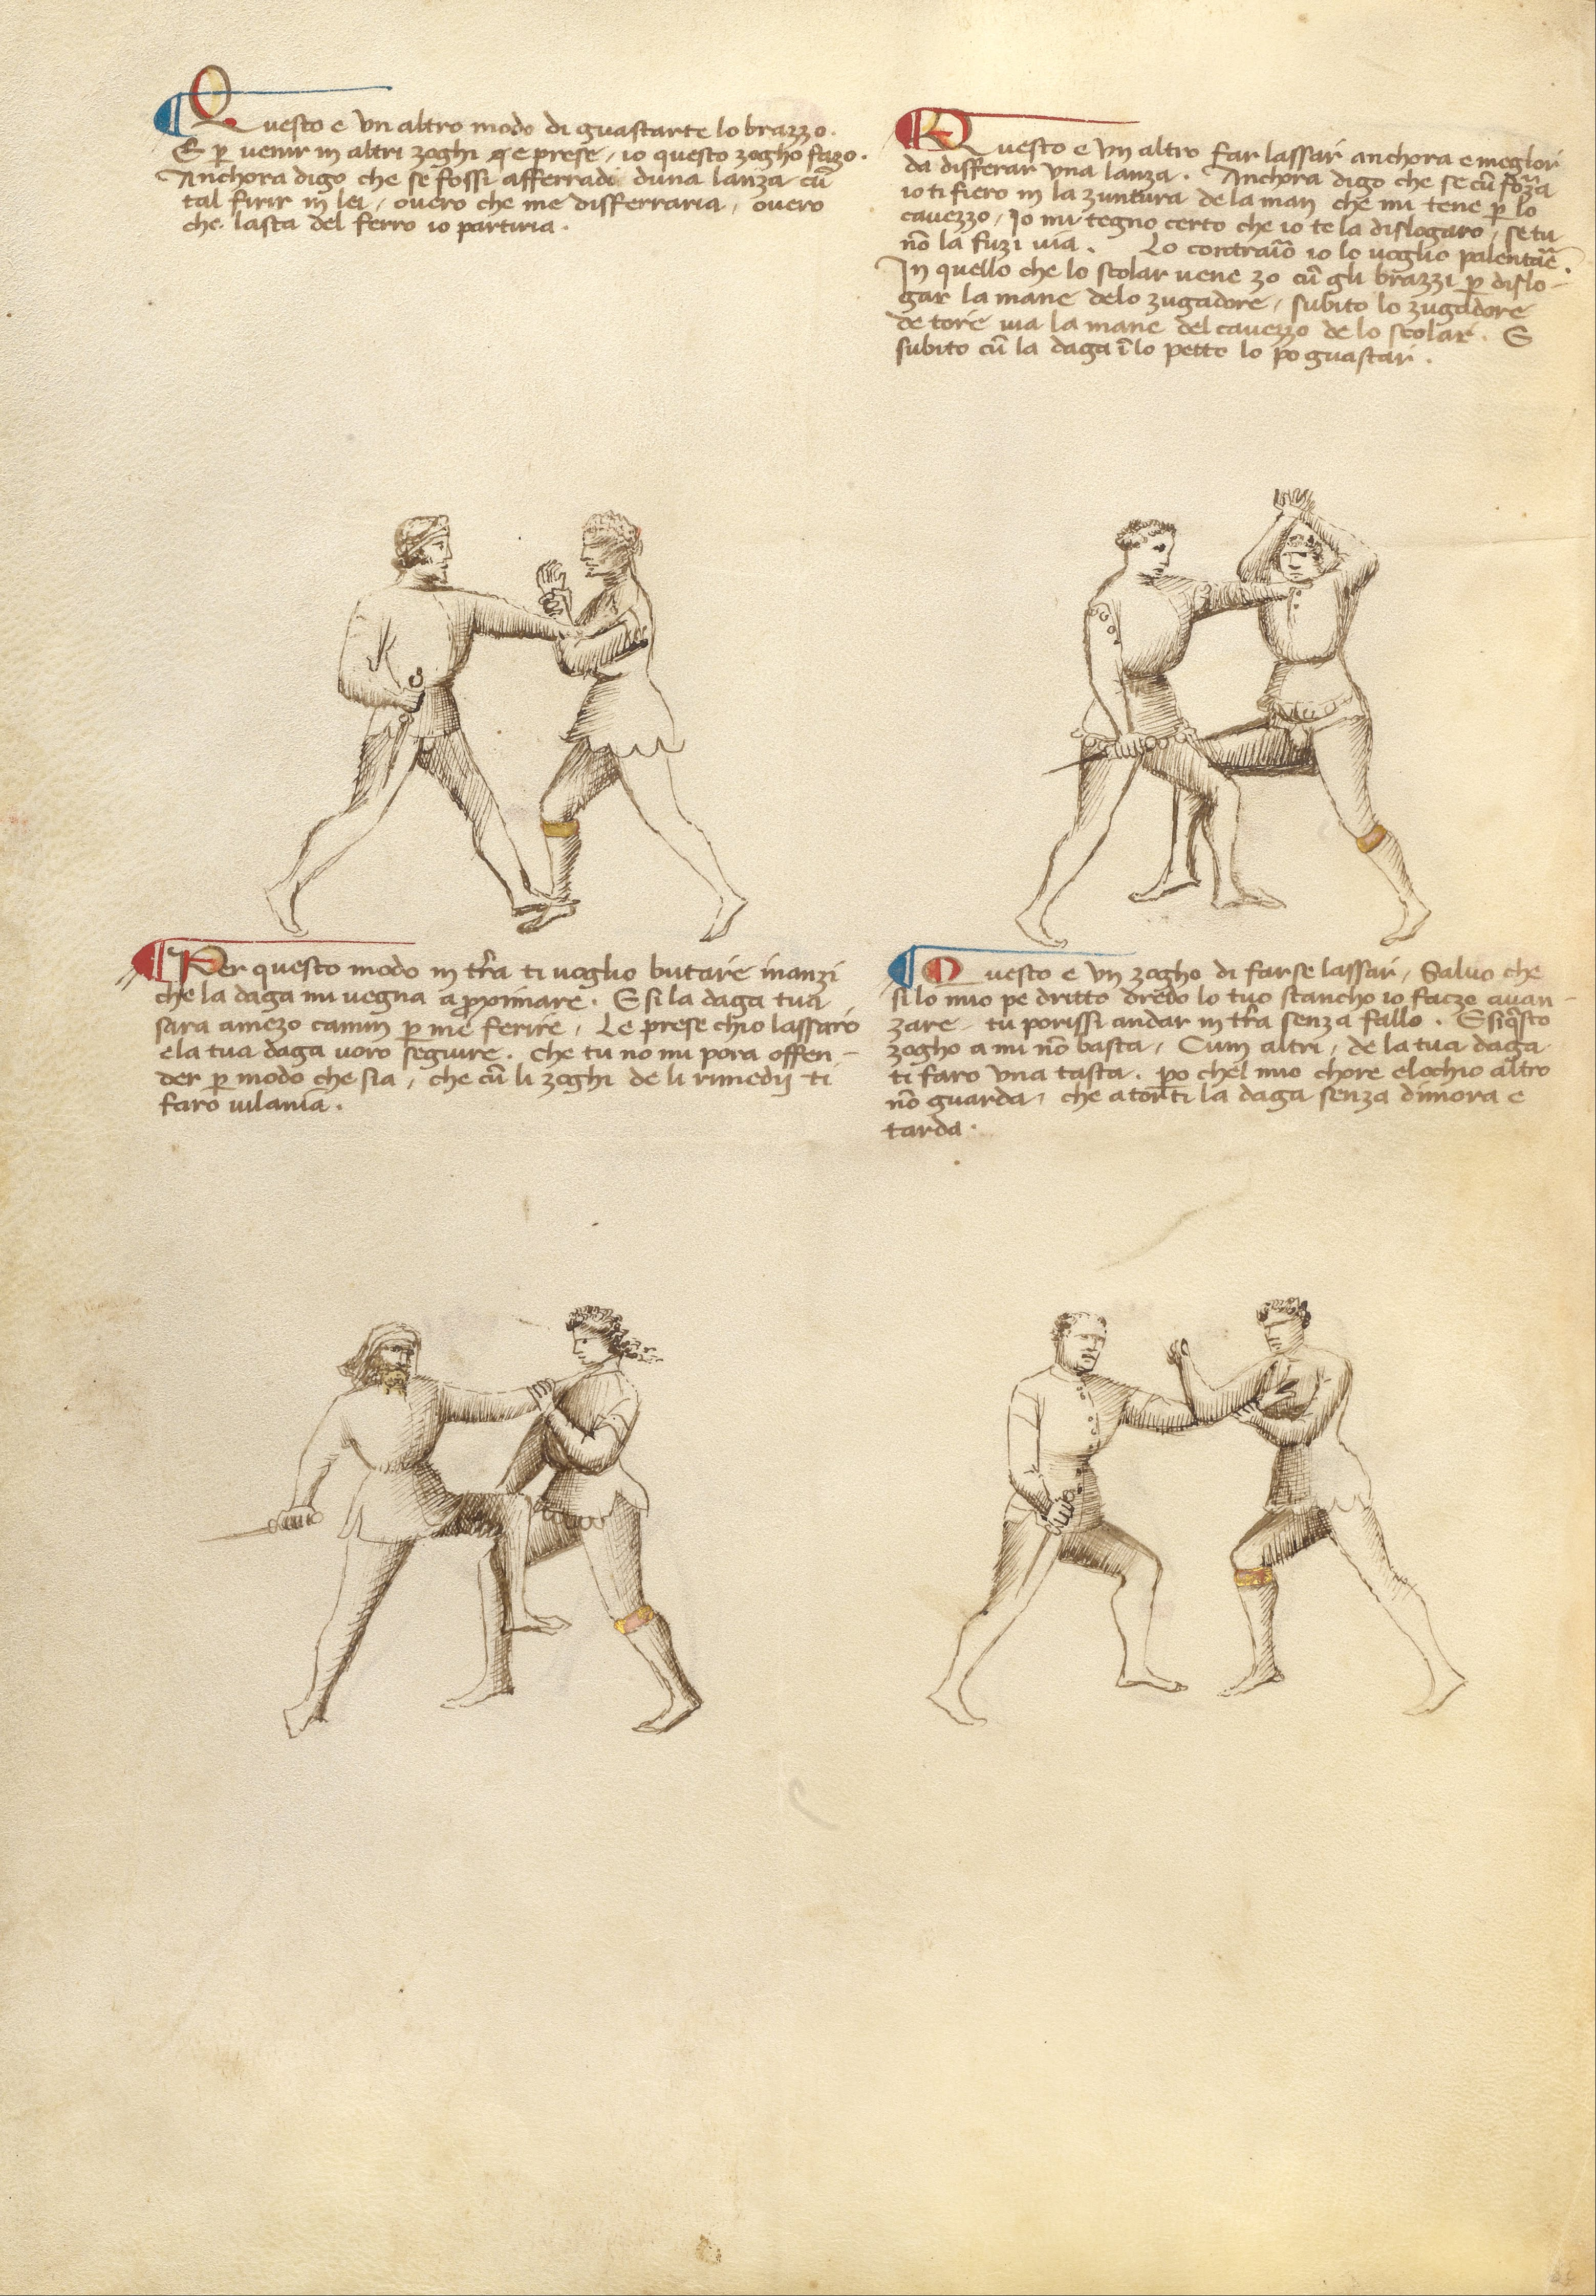 Questo e un altro modo di guastarte lo brazzo.
E per venir in altri zoghi e prese, io questo zogho fazo.
Anchora digo che se fossi afferradi duna lanza cū
tal firir in lei, overo che me disferraria, overo
che lasta del ferro io partiria.
Questo e un altro far lassar anchora e meglior
da disferar una lanza. Anchora digo che se cū forza
io ti fiero in la zuntura de la man che mi tene per lo
cavezzo, Io mi tegno certo che io te la dislogaro, se tu
nō la fuzi via. Lo contrario io lo voglio palentare.
In quello che lo scolar vene zo cū gli brazzi per dislo-
gar la mane delo zugadore, subito lo zugadore
de tore via la mane del cavezzo de lo scolar. E
subito cū la daga ī lo petto lo po guastar.
Per questo modo in tr̄a ti voglio butare inanzi
che la daga mi vegna aproximare. E si la daga tua
sara amezo camin per me ferire, Le prese chio lassaro
e la tua daga voro seguire. che tu no mi pora offen-
der per modo che sia, che cū li zoghi de li rimedij ti
faro vilania.
Questo e un zogho di farse lassar, Salvo che
si lo mio pe dritto dredo lo tuo stancho io faczo avan-
zare, tu porissi andar in tr̄a senza fallo. E si q̄sto
zogho a mi nō basta, Cum altri, de la tua daga
ti faro una tasta. po chel mio chore e lochio altro
nō guarda, che a torti la daga senza dimora e
tarda.